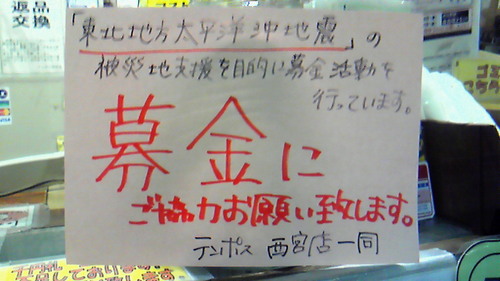 返品
交換
「東北地方太平洋沖地震」の
被災地支援を目的に募金活動を
行っています。
募金に
ご協力お願い致します。
テンポス 西宮店一同